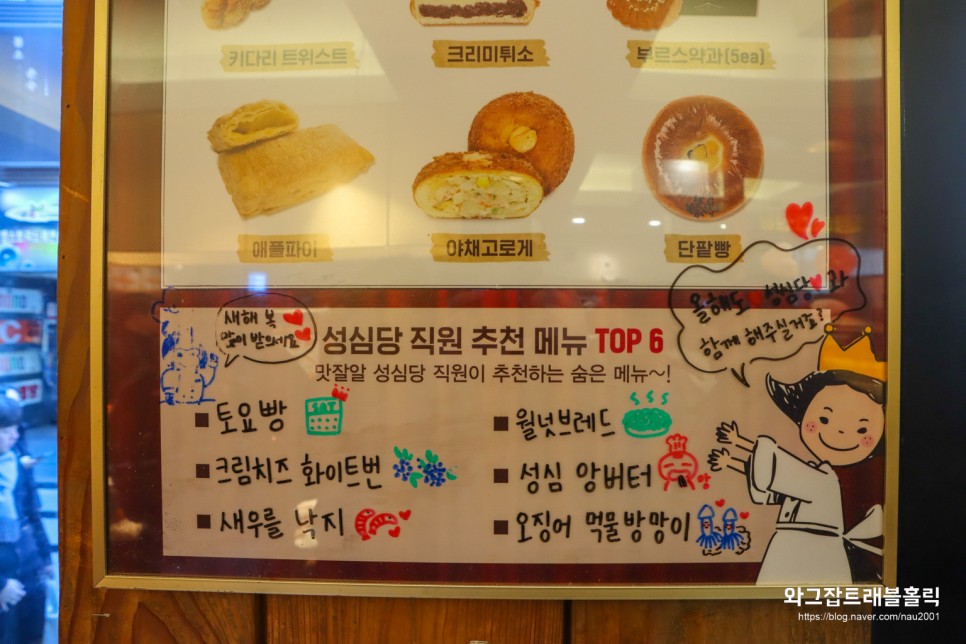 키다리 트위스트
크리미튀소
부르스약과(5ea)
애플파이
야채고로게
단팥빵
새해 복
많이 받으세요
올해도 성심당과
함께 해주실거죠?
성심당 직원 추천 메뉴 TOP 6
맛잘알 성심당 직원이 추천하는 숨은 메뉴~!
토요빵
SAT
월넛브레드
크림치즈 화이트번
성심 앙버터
앙
새우를 낙지
오징어 먹물방망이
와그잡트래블홀릭
https://blog.naver.com/nau2001